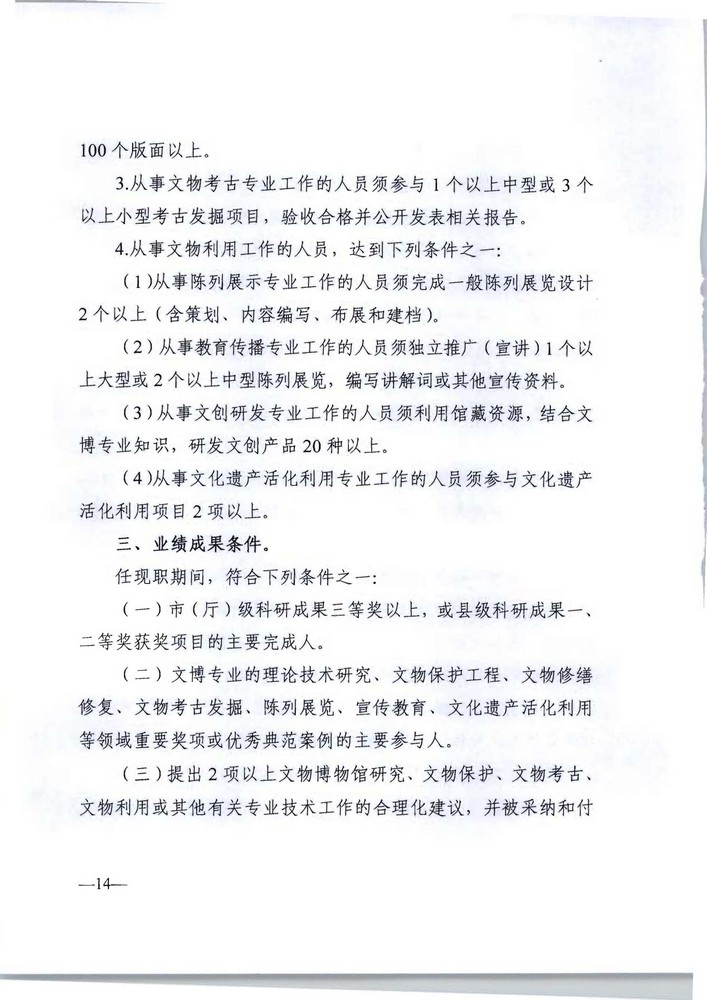 100 个版面以上。
3.从事文物考古专业工作的人员须参与 1 个以上中型或 3 个
以上小型考古发掘项目，验收合格并公开发表相关报告。
4.从事文物利用工作的人员，达到下列条件之一：
（1）从事陈列展示专业工作的人员须完成一般陈列展览设计
2 个以上（含策划、内容编写、布展和建档）。
（2）从事教育传播专业工作的人员须独立推广（宣讲）1 个以
上大型或 2 个以上中型陈列展览，编写讲解词或其他宣传资料。
（3）从事文创研发专业工作的人员须利用馆藏资源，结合文
博专业知识，研发文创产品 20 种以上。
（4）从事文化遗产活化利用专业工作的人员须参与文化遗产
活化利用项目 2 项以上。
三、业绩成果条件。
任现职期间，符合下列条件之一：
（一）市（厅）级科研成果三等奖以上，或县级科研成果一、
二等奖获奖项目的主要完成人。
（二）文博专业的理论技术研究、文物保护工程、文物修缮
修复、文物考古发掘、陈列展览、宣传教育、文化遗产活化利用
等领域重要奖项或优秀典范案例的主要参与人。
（三）提出 2 项以上文物博物馆研究、文物保护、文物考古、
文物利用或其他有关专业技术工作的合理化建议，并被采纳和付
—14—